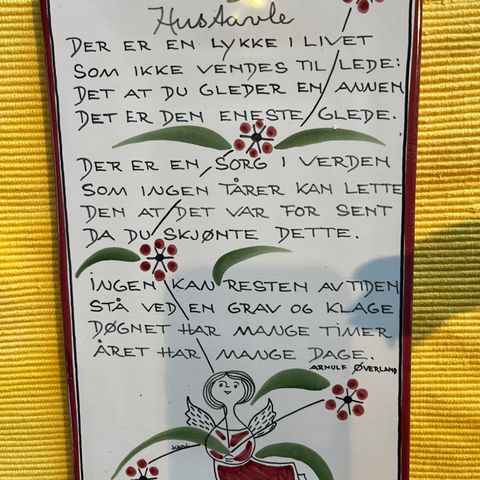 Hustavle
DER ER EN LYKKE I LIVET
SOM IKKE VENDES TIL LEDE:
DET AT DU GLEDER EN ANNEN
DET ER DEN ENESTE GLEDE.
DER ER EN SORG I VERDEN
SOM INGEN TÅRER KAN LETTE
DEN AT DET VAR FOR SENT
DA DU SKJØNTE DETTE.
INGEN KAN RESTEN AV TIDEN
STÅ VED EN GRAV OG KLAGE
DØGNET HAR MANGE TIMER
ÅRET HAR MANGE DAGE.
ARNULF ØVERLAND